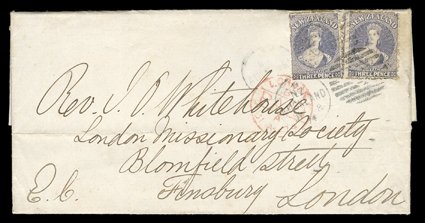 NEW ZEALAND NEW ZEALAND
THREE PENCE THREE PENCE
Rev. J. O. Whitehouse
London Missionary Society
Blomfield street
E.C. Finsbury London